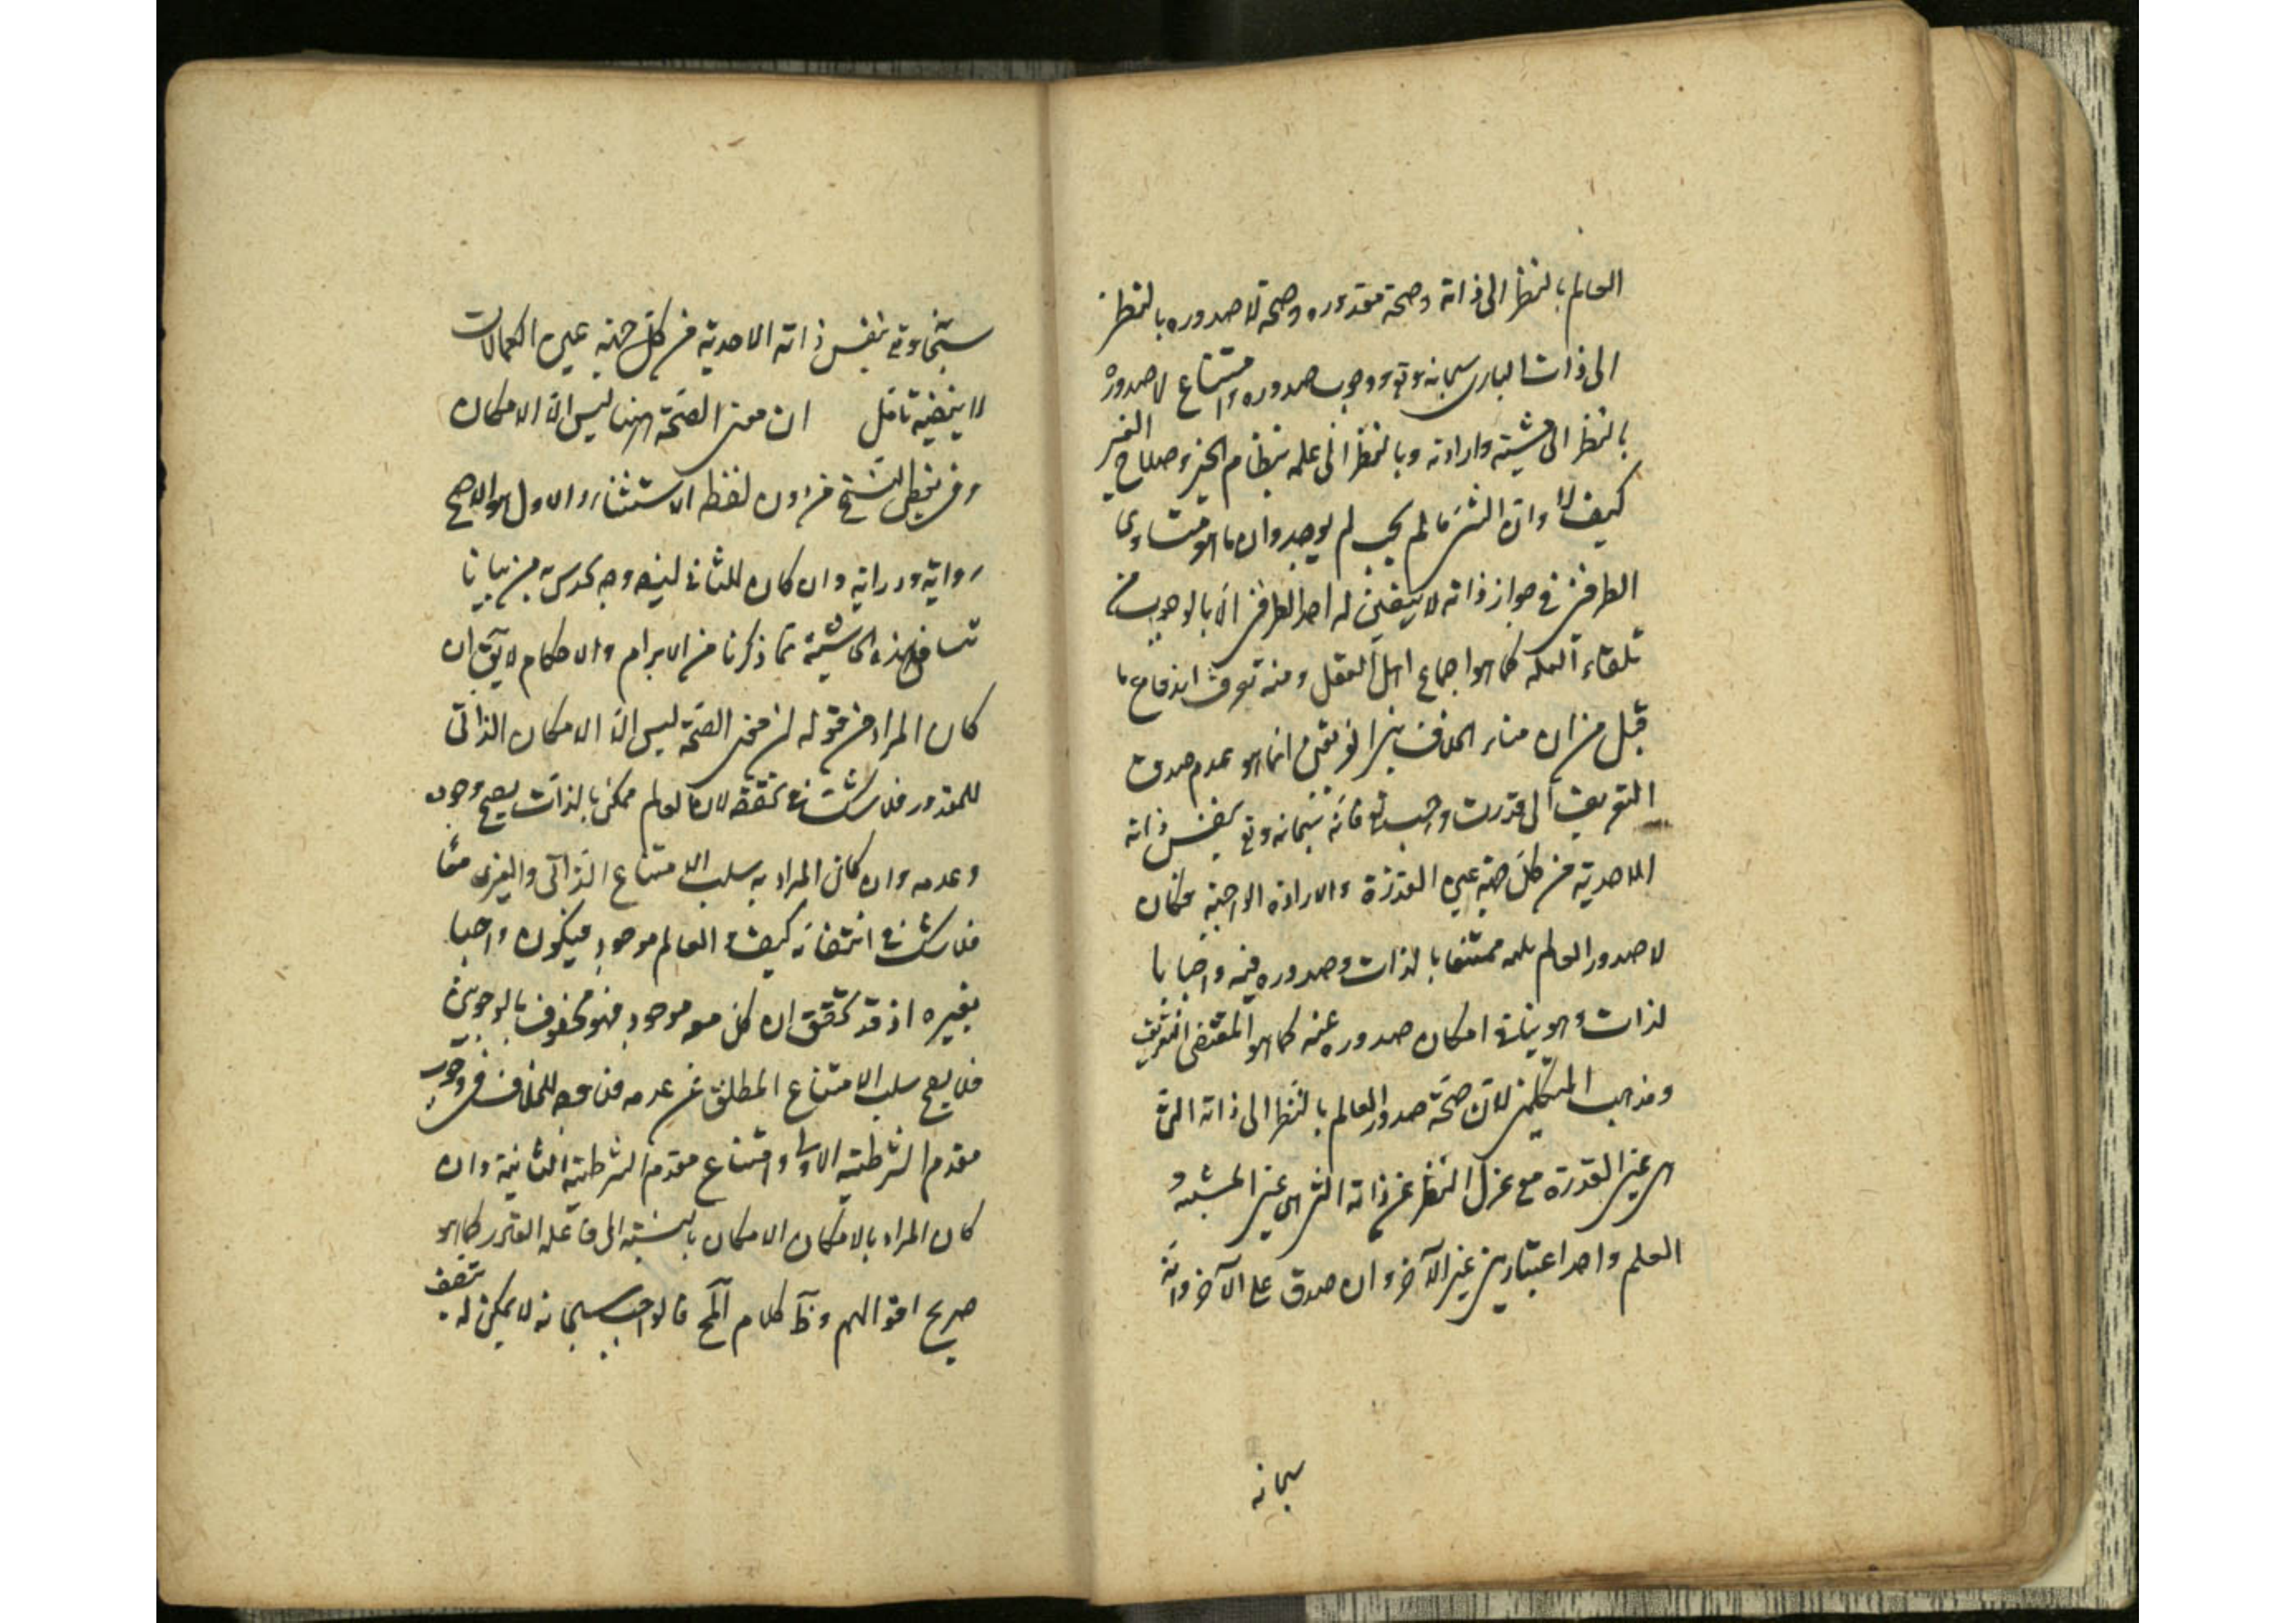 العالم بالنظر الى ذاته وصحة مقدوره وصحة لا صدوره بالنظر
الى ذات البارى سبحانه وتع ووجوب صدوره وامتناع لا صدوره
بالنظر الى مشيته وارادته وبالنظر الى علمه بنظام الخير وصلاح الغير
كيف لا وان الشئ ما لم يجب لم يوجد وان ما هو متساوى
الطرفين فى جواز ذاته لا يتعين له احد الطرفين الا بالوجوب من
تلقاء العلة كما هو اجماع اهل العقل ومنه تعرف اندفاع ما
قيل من ان منار الخلاف بين الفريقين انما هو عدم صدق
التعريف الى قدرت واجب فانه سبحانه وتع بنفس ذاته
الاحدية من كل جهة عين القدرة والارادة الواجبة فكان
لا صدور العالم ممتنعا بالذات وصدوره فيه واجبا با
لذات وهو ينافى امكان صدوره عنه كما هو المقتضى التعريف
ومذهب المتكلمين لان صحة صدور العالم بالنظر الى ذاته التى
هى عين القدرة مع عزل النظر عن ذاته التى هى عين المشية و
العلم واحد اعتبارين غير الآخر وان صدق على الآخر وانه
سبحانه
سبحانه وتع بنفس ذاته الاحدية من كل جهة عين الكمالات
لا ينقضيه تامل ان معنى الصحة هنا ليس الا الامكان
وفى بعض النسخ من دون لفظ الاستثناء والاول هو الاصح
رواية ودراية وان كان للثانى ايضا وجه من بيانا
تنا فى هذه الحاشية مما ذكرنا من الابرام والاحكام لايق ان
كان المراد من قوله ان معنى الصحة ليس الا الامكان الذاتى
للمقدور فلا شك فى تحققه لان العالم ممكن بالذات يصح وجوده
وعدمه وان كان المراد به سلب الامتناع الذاتى والغيرى معا
فلا شك فى انتفائه كيف والعالم موجود فيكون واجبا
بغيره اذ قد تحقق ان كل موجود فهو محفوف بالوجوبين
فلا يصح سلب الامتناع المطلق عن عدمه فلا وجه للخلاف فى وجوب
مقدم الشرطية الاولى وامتناع مقدم الشرطية الثانية وان
كان المراد بالامكان الامكان بالنسبة الى فاعله القدير كما هو
صريح اقوالهم وظ كلام المح فالواجب سبحانه لا يمكن له